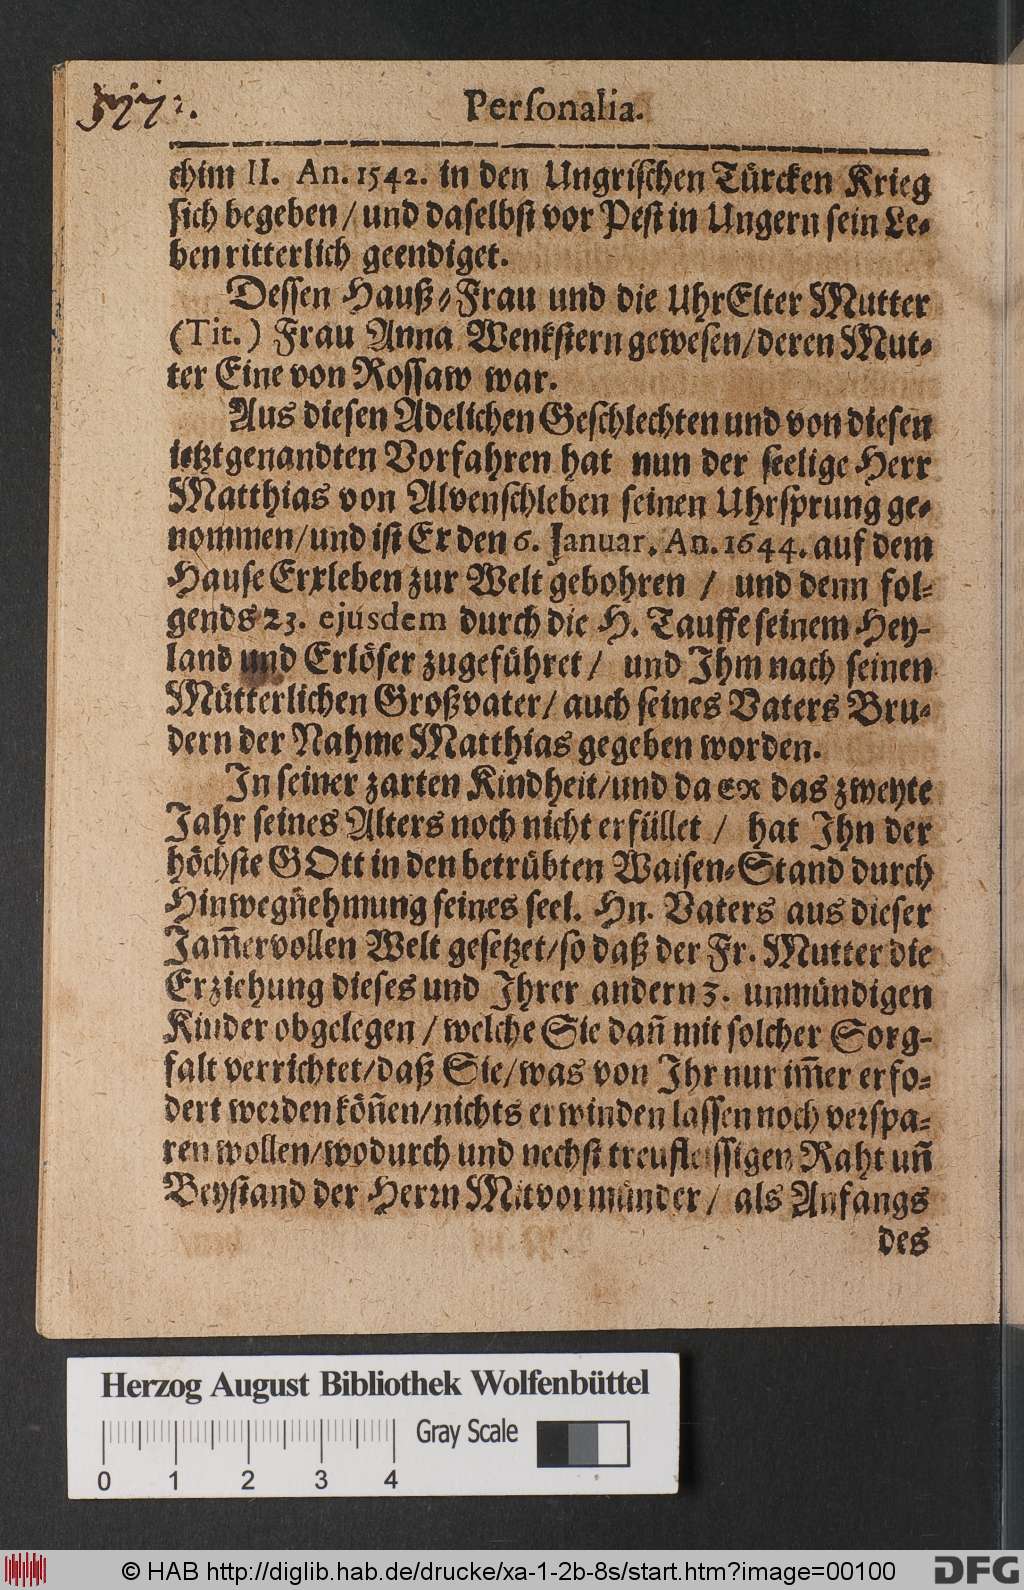 Perſonalia.
chim II. An. 1542. in den Ungriſchen Türcken Krieg
ſich begeben / und daſelbſt vor Peſt in Ungern ſein Le-
ben ritterlich geendiget.
Deſſen Hauß-Frau und die UhrElter Mutter
(Tit.) Frau Anna Wenkſtern geweſen / deren Mut-
ter Eine von Roſſaw war.
Aus dieſen Adelichen Geſchlechten und von dieſen
ietztgenandten Vorfahren hat nun der ſeelige Herr
Matthias von Alvenſchleben ſeinen Uhrſprung ge-
nommen / und iſt Er den 6. Januar. An. 1644. auf dem
Hauſe Erxleben zur Welt gebohren / und denn fol-
gends 23. ejusdem durch die H. Tauffe ſeinem Hey-
land und Erlöſer zugeführet / und Ihm nach ſeinen
Mütterlichen Großvater / auch ſeines Vaters Bru-
dern der Nahme Matthias gegeben worden.
In ſeiner zarten Kindheit / und da ER das zweyte
Jahr ſeines Alters noch nicht erfüllet / hat Ihn der
höchſte GOtt in den betrübten Waiſen-Stand durch
Hinwegnehmung ſeines ſeel. Hn. Vaters aus dieſer
Jam̃ervollen Welt geſetzet / ſo daß der Fr. Mutter die
Erziehung dieſes und Ihrer andern 3. unmündigen
Kinder obgelegen / welche Sie dañ mit ſolcher Sorg-
falt verrichtet / daß Sie / was von Ihr nur im̃er erfo-
dert werden köñen / nichts erwinden laſſen noch verſpa-
ren wollen / wodurch und nechſt treufleiſſigen Raht uñ
Beyſtand der Herrn Mitvormünder / als Anfangs
des
Herzog August Bibliothek Wolfenbüttel
Gray Scale
0 1 2 3 4
© HAB http://diglib.hab.de/drucke/xa-1-2b-8s/start.htm?image=00100
DFG